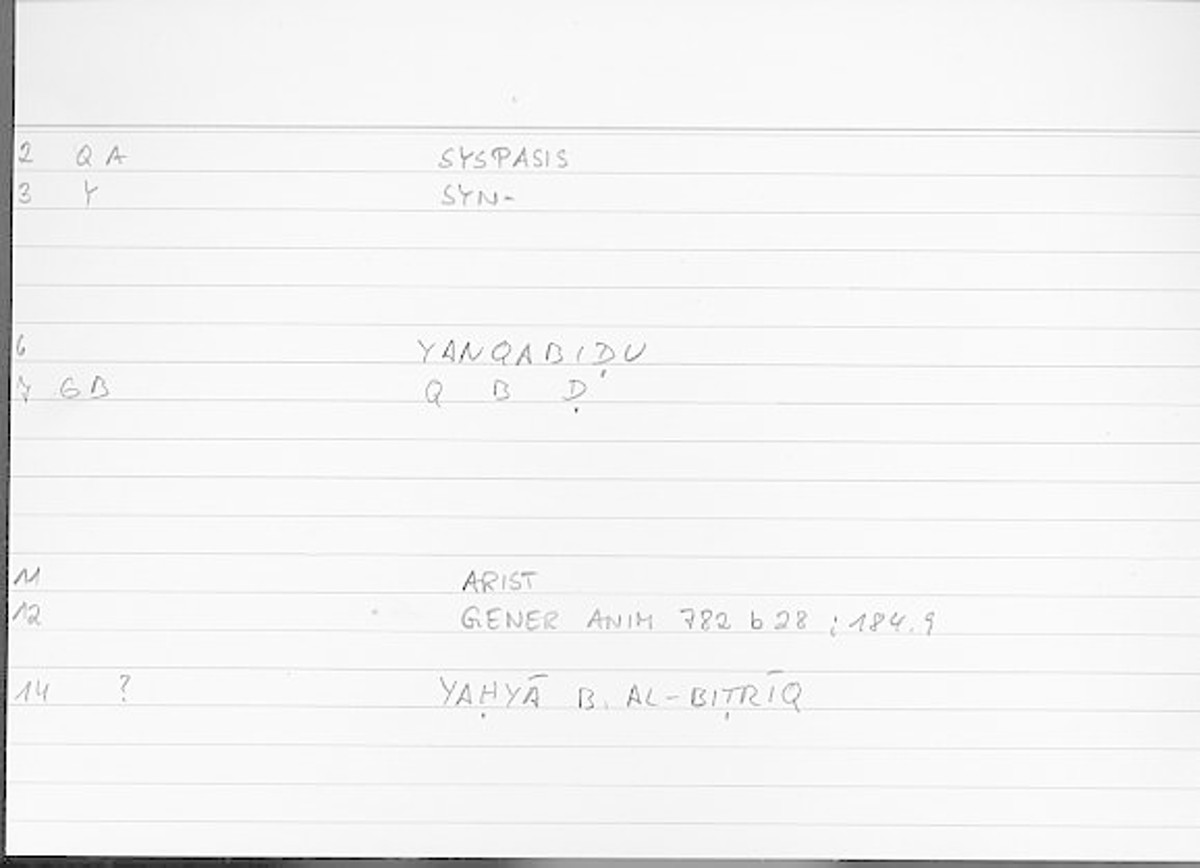 2 QA SYSPASIS
3 Y SYN-
6 YANQABIḌU
7 GB Q B Ḍ
11 ARIST
12 GENER ANIM 782 b 28 ; 184.9
14 ? YAḤYĀ B. AL-BIṬRĪQ